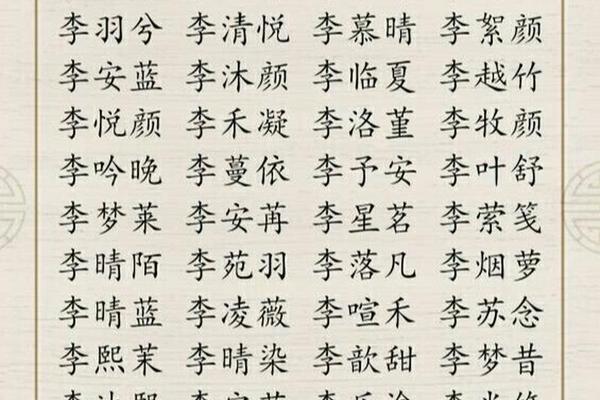 李羽兮 李清悦 李慕晴 李絮颜
李安蓝 李沐颜 李临夏 李越竹
李悦颜 李禾凝 李洛堇 李牧颜
李吟晚 李蔓依 李予安 李叶舒
李梦莱 李安苒 李星茗 李萦笺
李晴陌 李苑羽 李落凡 李烟萝
李晴蓝 李凌薇 李喧禾 李苏念
李熙茉 李晴染 李歆甜 李梦昔